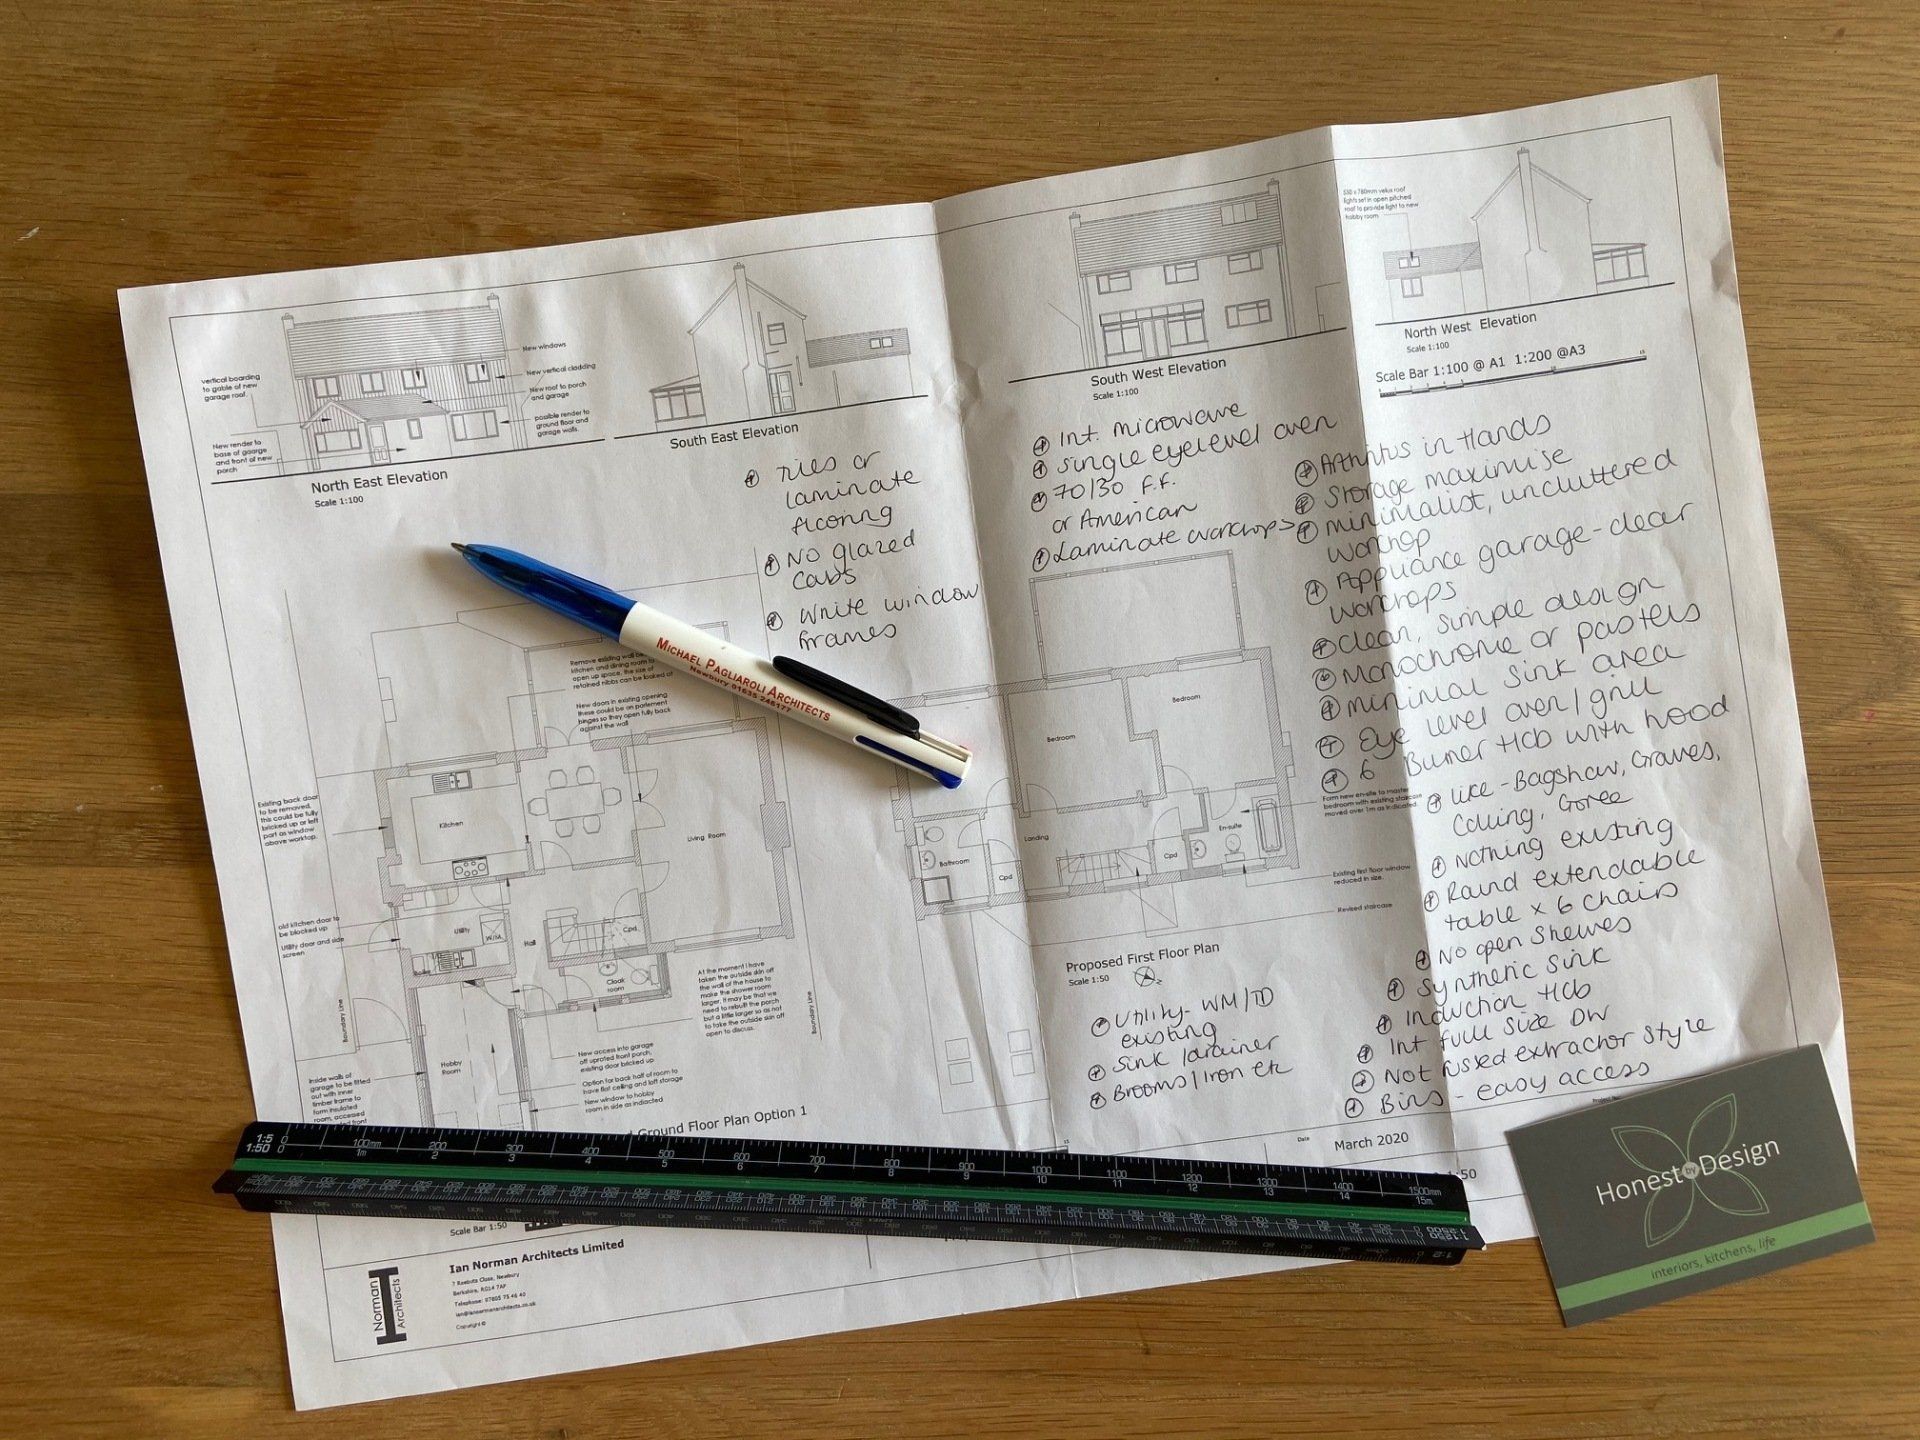 vertical boarding
to gable of new
garage roof.
New render to
base of gaarge
and front of new
porch
New windows
New vertical cladding
New roof to porch
and garage
possible render to
ground floor and
garage walls.
North East Elevation
Scale 1:100
South East Elevation
South West Elevation
Scale 1:100
530 x 780mm velux roof
lights set in open pitched
roof to provide light to new
hobby room
North West Elevation
Scale 1:100
Scale Bar 1:100 @ A1 1:200 @A3
Tiles or
Laminate
flooring
No glazed
cabs
White window
frames
Int. microwave
Single eyelevel oven
70/30 F.F.
or American
Laminate worktops
Arthritus in Hands
Storage maximise
minimalist, uncluttered
worktop
Appliance garage - clear
worktops
Clean, simple design
Monochrome or pastels
minimal sink area
Eye level oven/grill
6 Burner Hob with hood
like - Bagshaw, Graves,
Nothing existing
Round extendable
table x 6 chairs
No open shelves
Synthetic sink
Induction Hob
Int full size DW
Not fussed extractor style
Bins - easy access
Remove existing wall
kitchen and dining room to
open up space, the size of
retained nibbs can be looked at
New doors in existing opening
these could be on parlement
hinges so they open fully back
against the wall
Existing back door
to be removed,
this could be fully
bricked up or left
part as window
above worktop.
Kitchen
Living Room
old kitchen door to
be blocked up
Utility door and side
screen
Utility
W/M
Boiler
Hall
Cpd
Cloak
room
Boundary Line
At the moment I have
taken the outside skin off
the wall of the house to
make the shower room
larger. It may be that we
need to rebuilt the porch
but a little larger so as not
to take the outside skin off
open to discuss.
Boundary Line
Hobby
Room
New access into garage
off uprated front porch,
existing door bricked up
Option for back half of room to
have flat ceiling and loft storage
New window to hobby
room in side as indiacted
Inside walls of
garage to be fitted
out with inner
timber frame to
form insulated
room, accessed
Ground Floor Plan Option 1
Bedroom
Bedroom
Landing
Bathroom
Cpd
Cpd
En-suite
Form new en-site to master
bedroom with existing staircase
moved over 1m as indicated.
Existing first floor window
reduced in size.
Revised staircase
Proposed First Floor Plan
Scale 1:50
Utility - WM/TD
existing
Sink/drainer
Brooms/Iron etc
Date
March 2020
1:50
MICHAEL PAGLIAROLI ARCHITECTS
Newbury 01635 246177
1:5 0 100mm 200 300 400 500 600 700 800 900 1000 1100 1200 1300 1400 1500mm
1:50 0 1m 2 3 4 5 6 7 8 9 10 11 12 13 14 15m
Scale Bar 1:50
Norman
Architects
Ian Norman Architects Limited
7 Roebuts Close, Newbury
Berkshire, RG14 7AP
Telephone: 07805 75 46 40
ian@iannormanarchitects.co.uk
Copyright ©
Honest by Design
interiors, kitchens, life